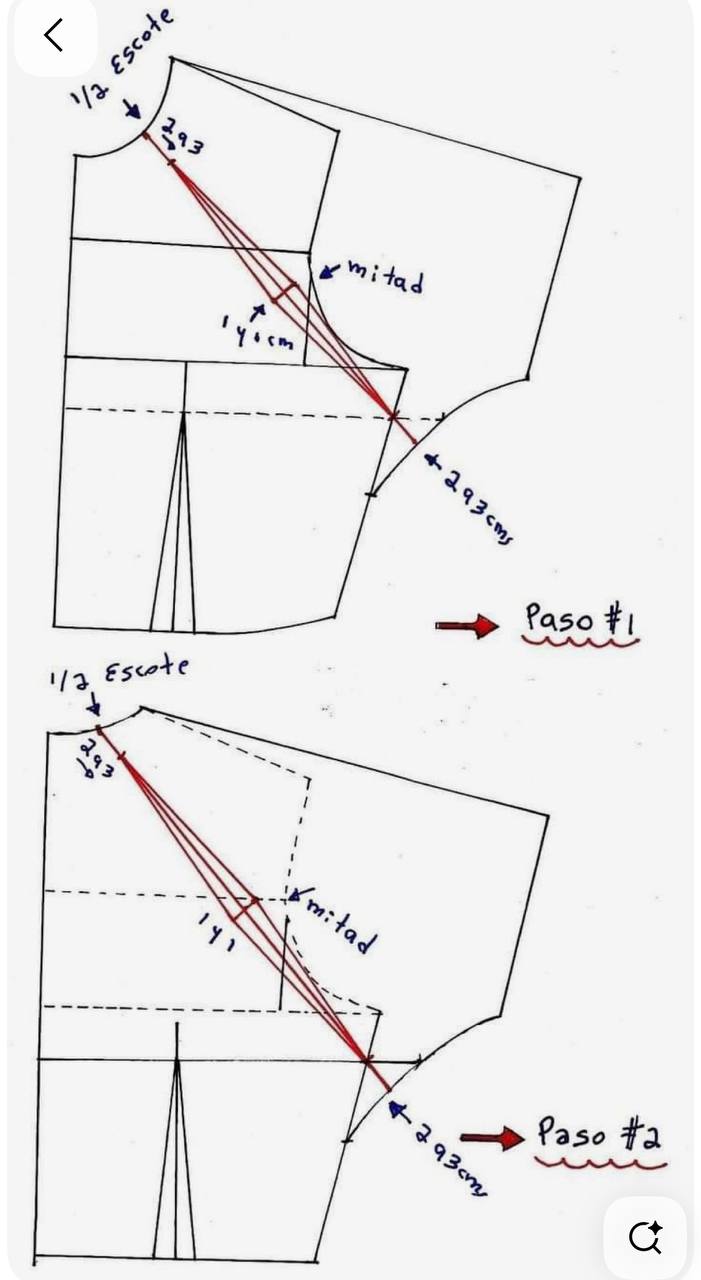 1/2 Escote
2 y 3
mitad
1 y 1 cm
2 y 3 cms
Paso #1
1/2 Escote
2 y 3
mitad
1 y 1
2 y 3 cms
Paso #2